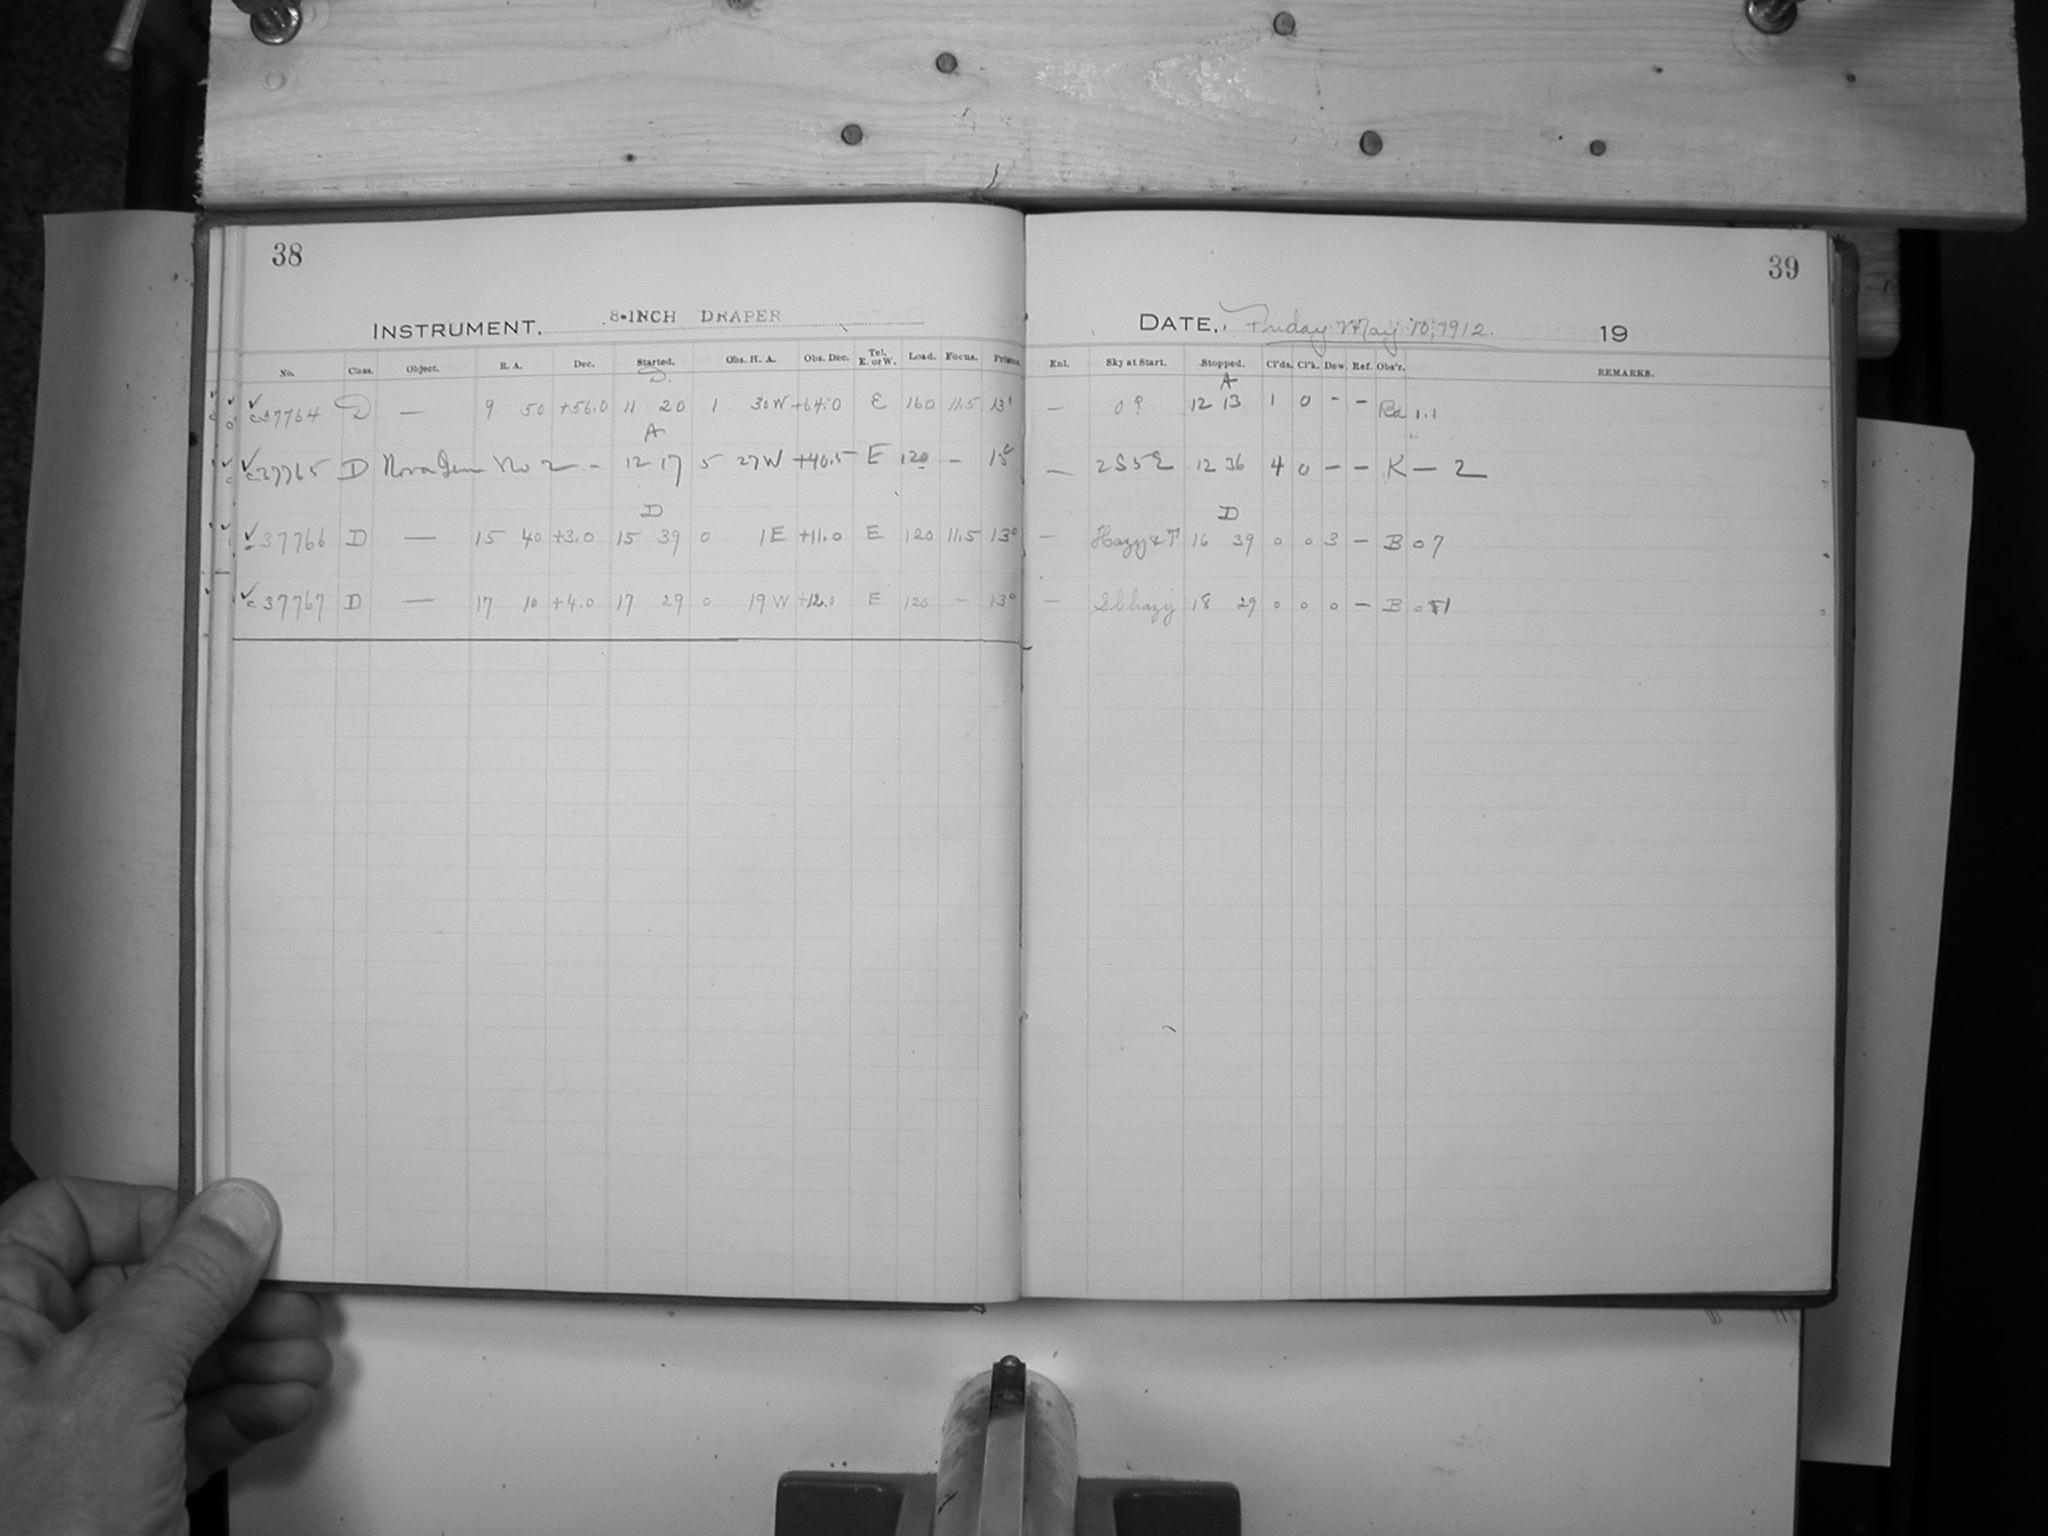 38
39
INSTRUMENT. 8-INCH DRAPER
DATE, Friday May 10, 1912. 19
No. Class. Object. R. A. Dec. Started. Obs. H. A. Obs. Dec. Tel. E. or W. Load. Focus. Enl. Sky at Start. Stopped. Cl'ds. Cl'k. Dew. Ref. Obs'r. REMARKS.
D. A
c37764 D — 9 50 +56.0 11 20 1 30 W +64.0 E 160 11.5 13° — 12 13 1 0 - -
A
c37765 D Nova Gem No 2 - 12 17 5 27 W +40.5 E 120 - — 2S52 12 36 4 0 - - K — 2
D D
c37766 D — 15 40 +3.0 15 39 0 1 E +11.0 E 120 11.5 13° — 16 39 0 0 3 - B 0 7
c37767 D — 17 10 +4.0 17 29 0 19 W +12.0 E 120 - 13° — 18 29 0 0 0 - B